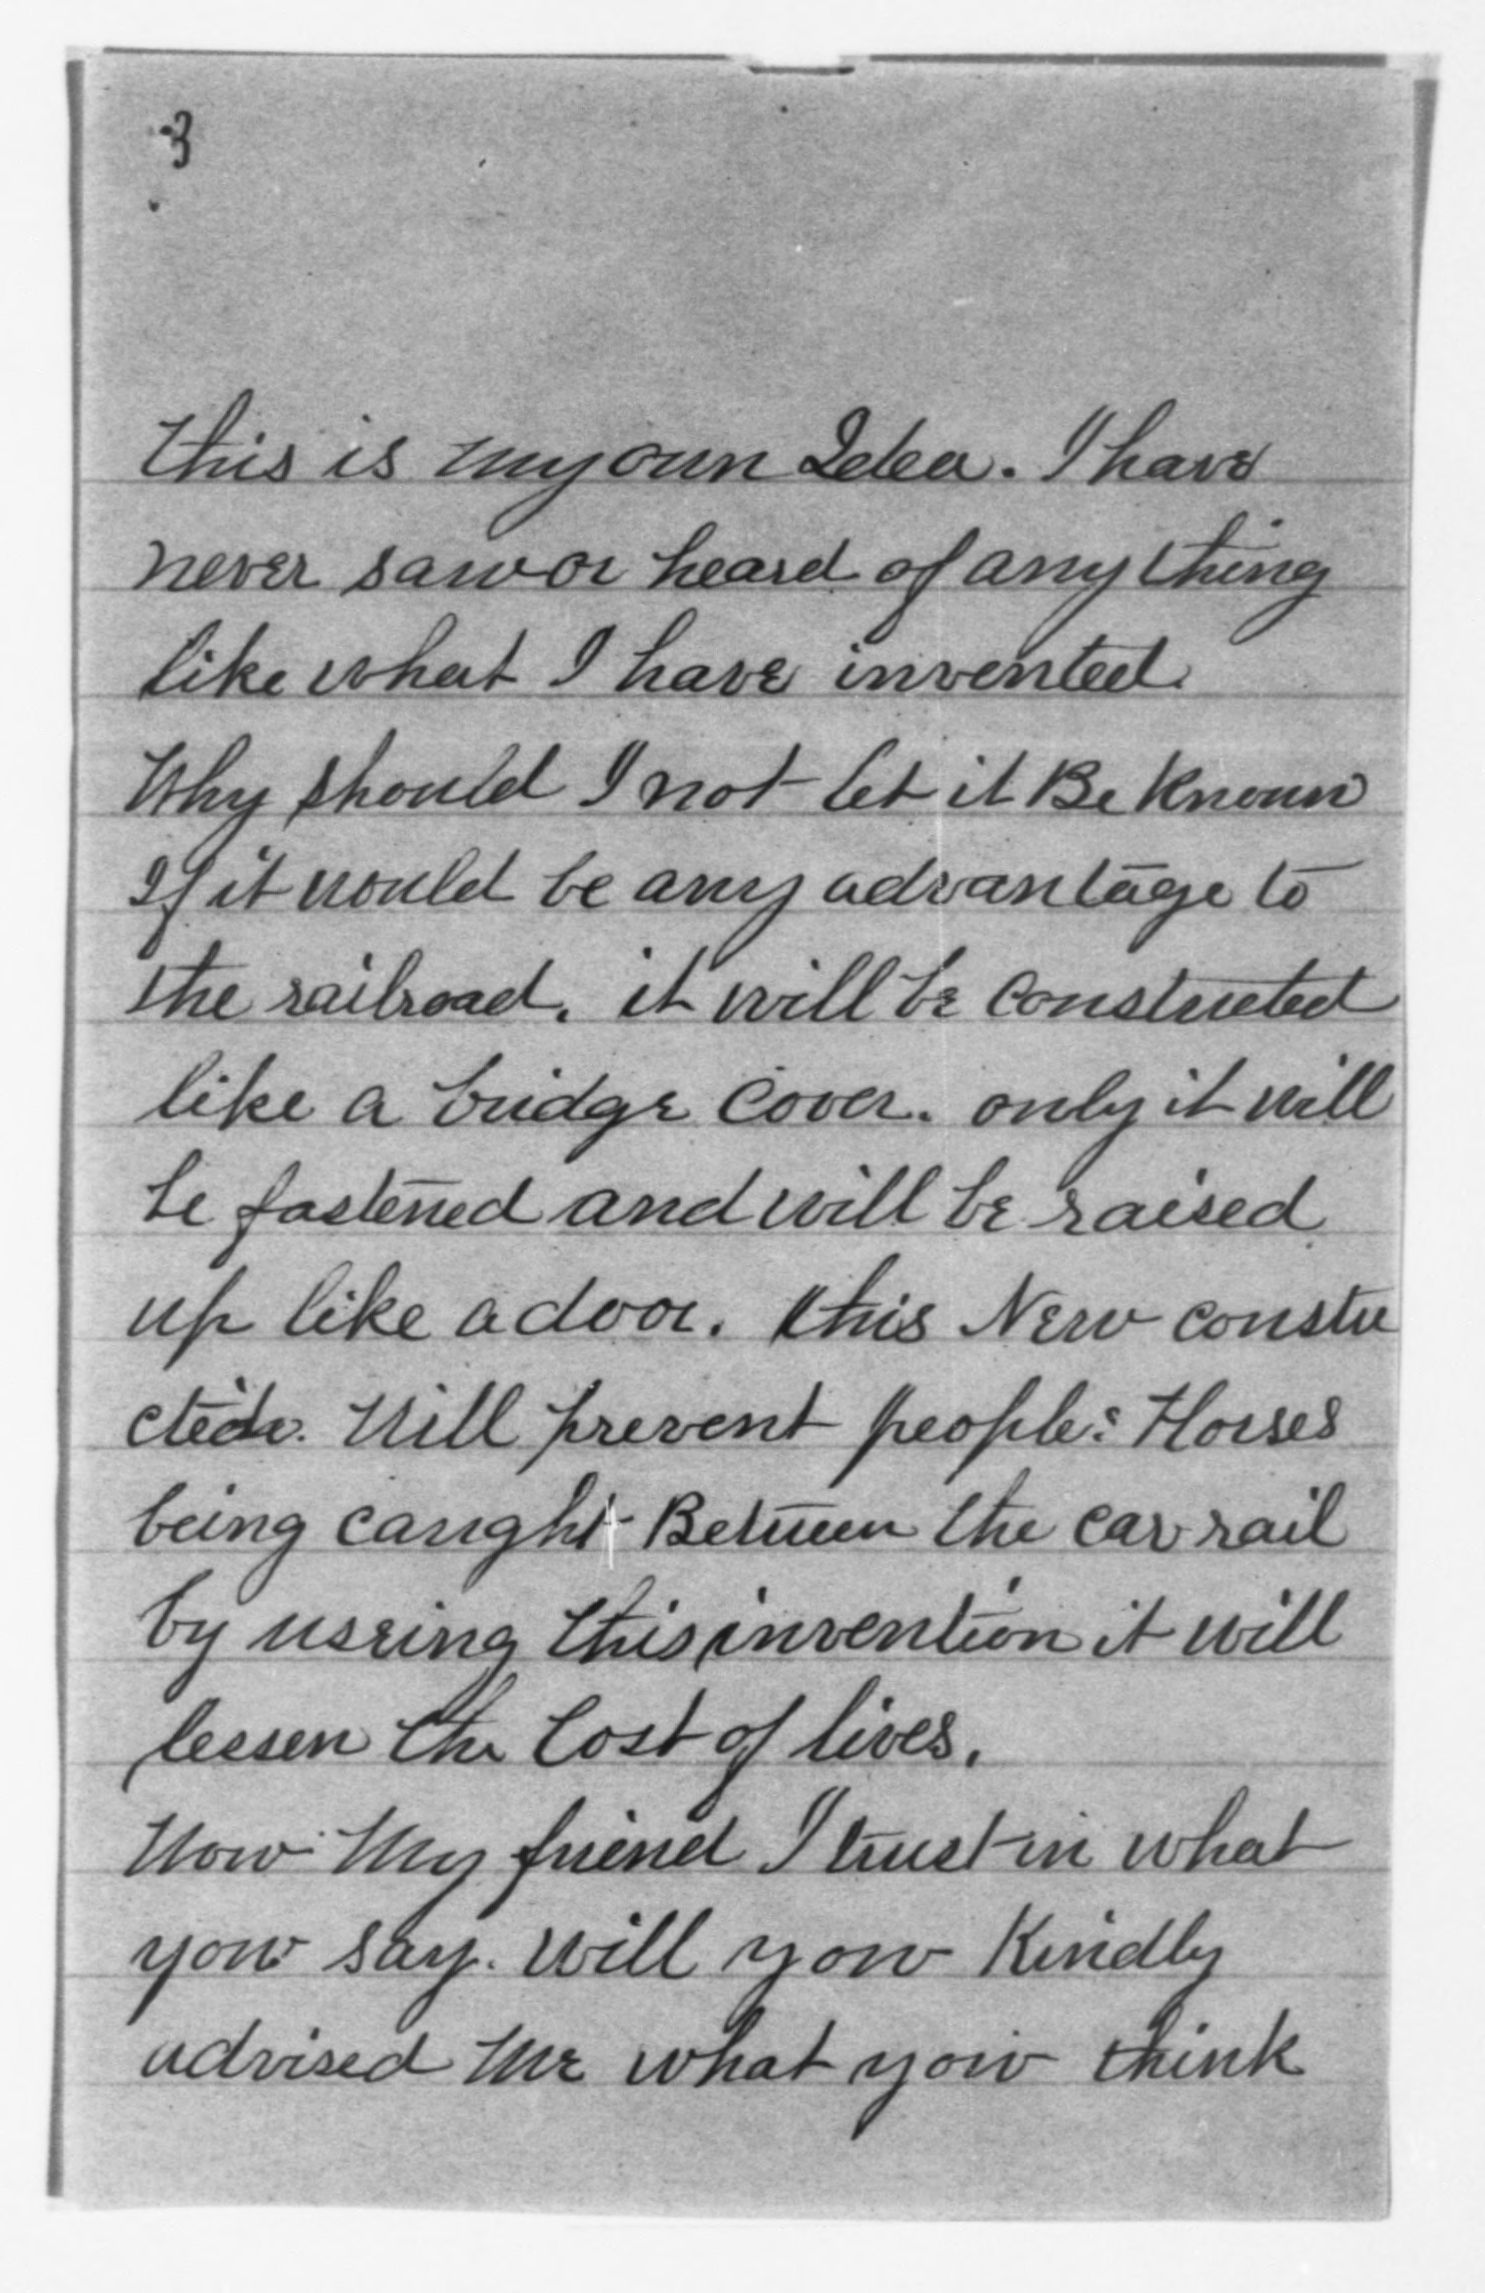 3
this is my own Idea. I have
never saw or heard of anything
like what I have invented.
Why should I not let it Be Known
If it would be any advantage to
the railroad. it will be constructed
like a bridge cover. only it will
be fastened and will be raised
up like a door. this New constru
Will prevent people: Horses
being caught Between the car rail
by useing this invention it will
lessen the Cost of lives.
Now My friend I trust in what
you say. will you Kindly
advised Me what you think